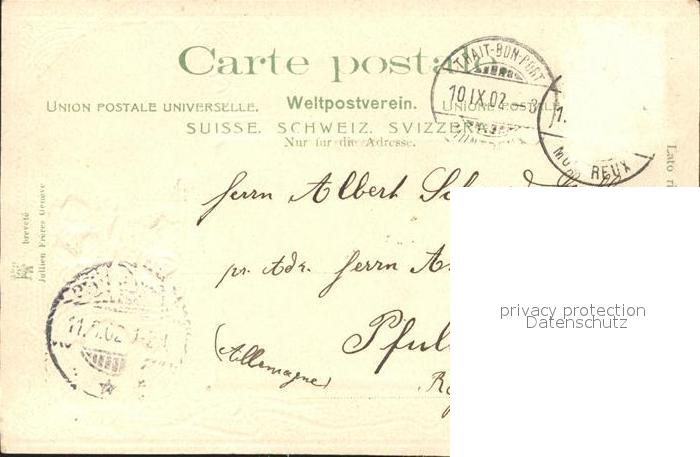 Carte postale
UNION POSTALE UNIVERSELLE. Weltpostverein. UNIONE POSTALE
SUISSE. SCHWEIZ. SVIZZERA
Nur für die Adresse.
TRAIT-BON-PORT
10.IX.02.-8
MONTREUX
MONTREUX
Lato
Jullien Frères Genève
breveté
Herrn Albert
pr. Adr. Herrn
Pful
(Allemagne)
11.9.02
privacy protection
Datenschutz